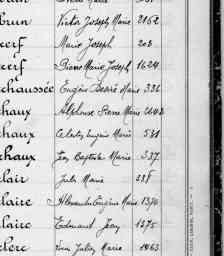 brun Victor Joseph Marie 2162
cerf Marie Joseph 202
cerf Pierre Marie Joseph 1624
chaussée Eugène Désiré Marie 336
chaux Alphonse Pierre Marie
chaux Eugène Marie 581
chaux Jean Baptiste Marie 537
clair Jules Marie
claire Alexandre Eugène Marie 1370
claire Edouard Jean 1275
clerc Jules Marie 1063